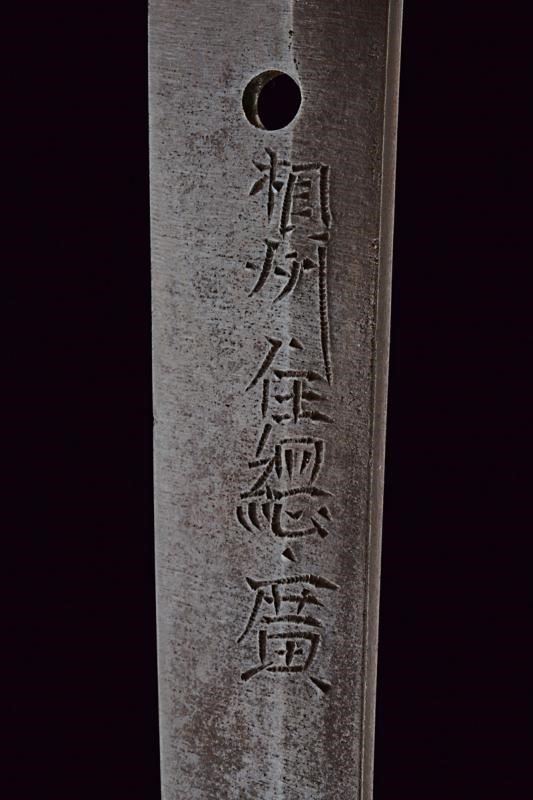 相州住綱廣